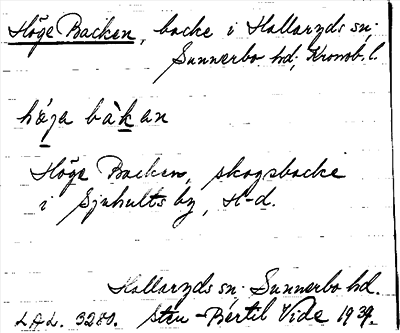 Höge Backen, backe i Hallaryds sn;
Sunnerbo hd; Kronob. l.
hǝ́ga bàkan
Höge Backen, skogsbacke
i Sjnhults by, H-d.
Hallaryds sn. Sunnerbo hd.
LAL. 3280. Sten-Bertil Vide 1939.